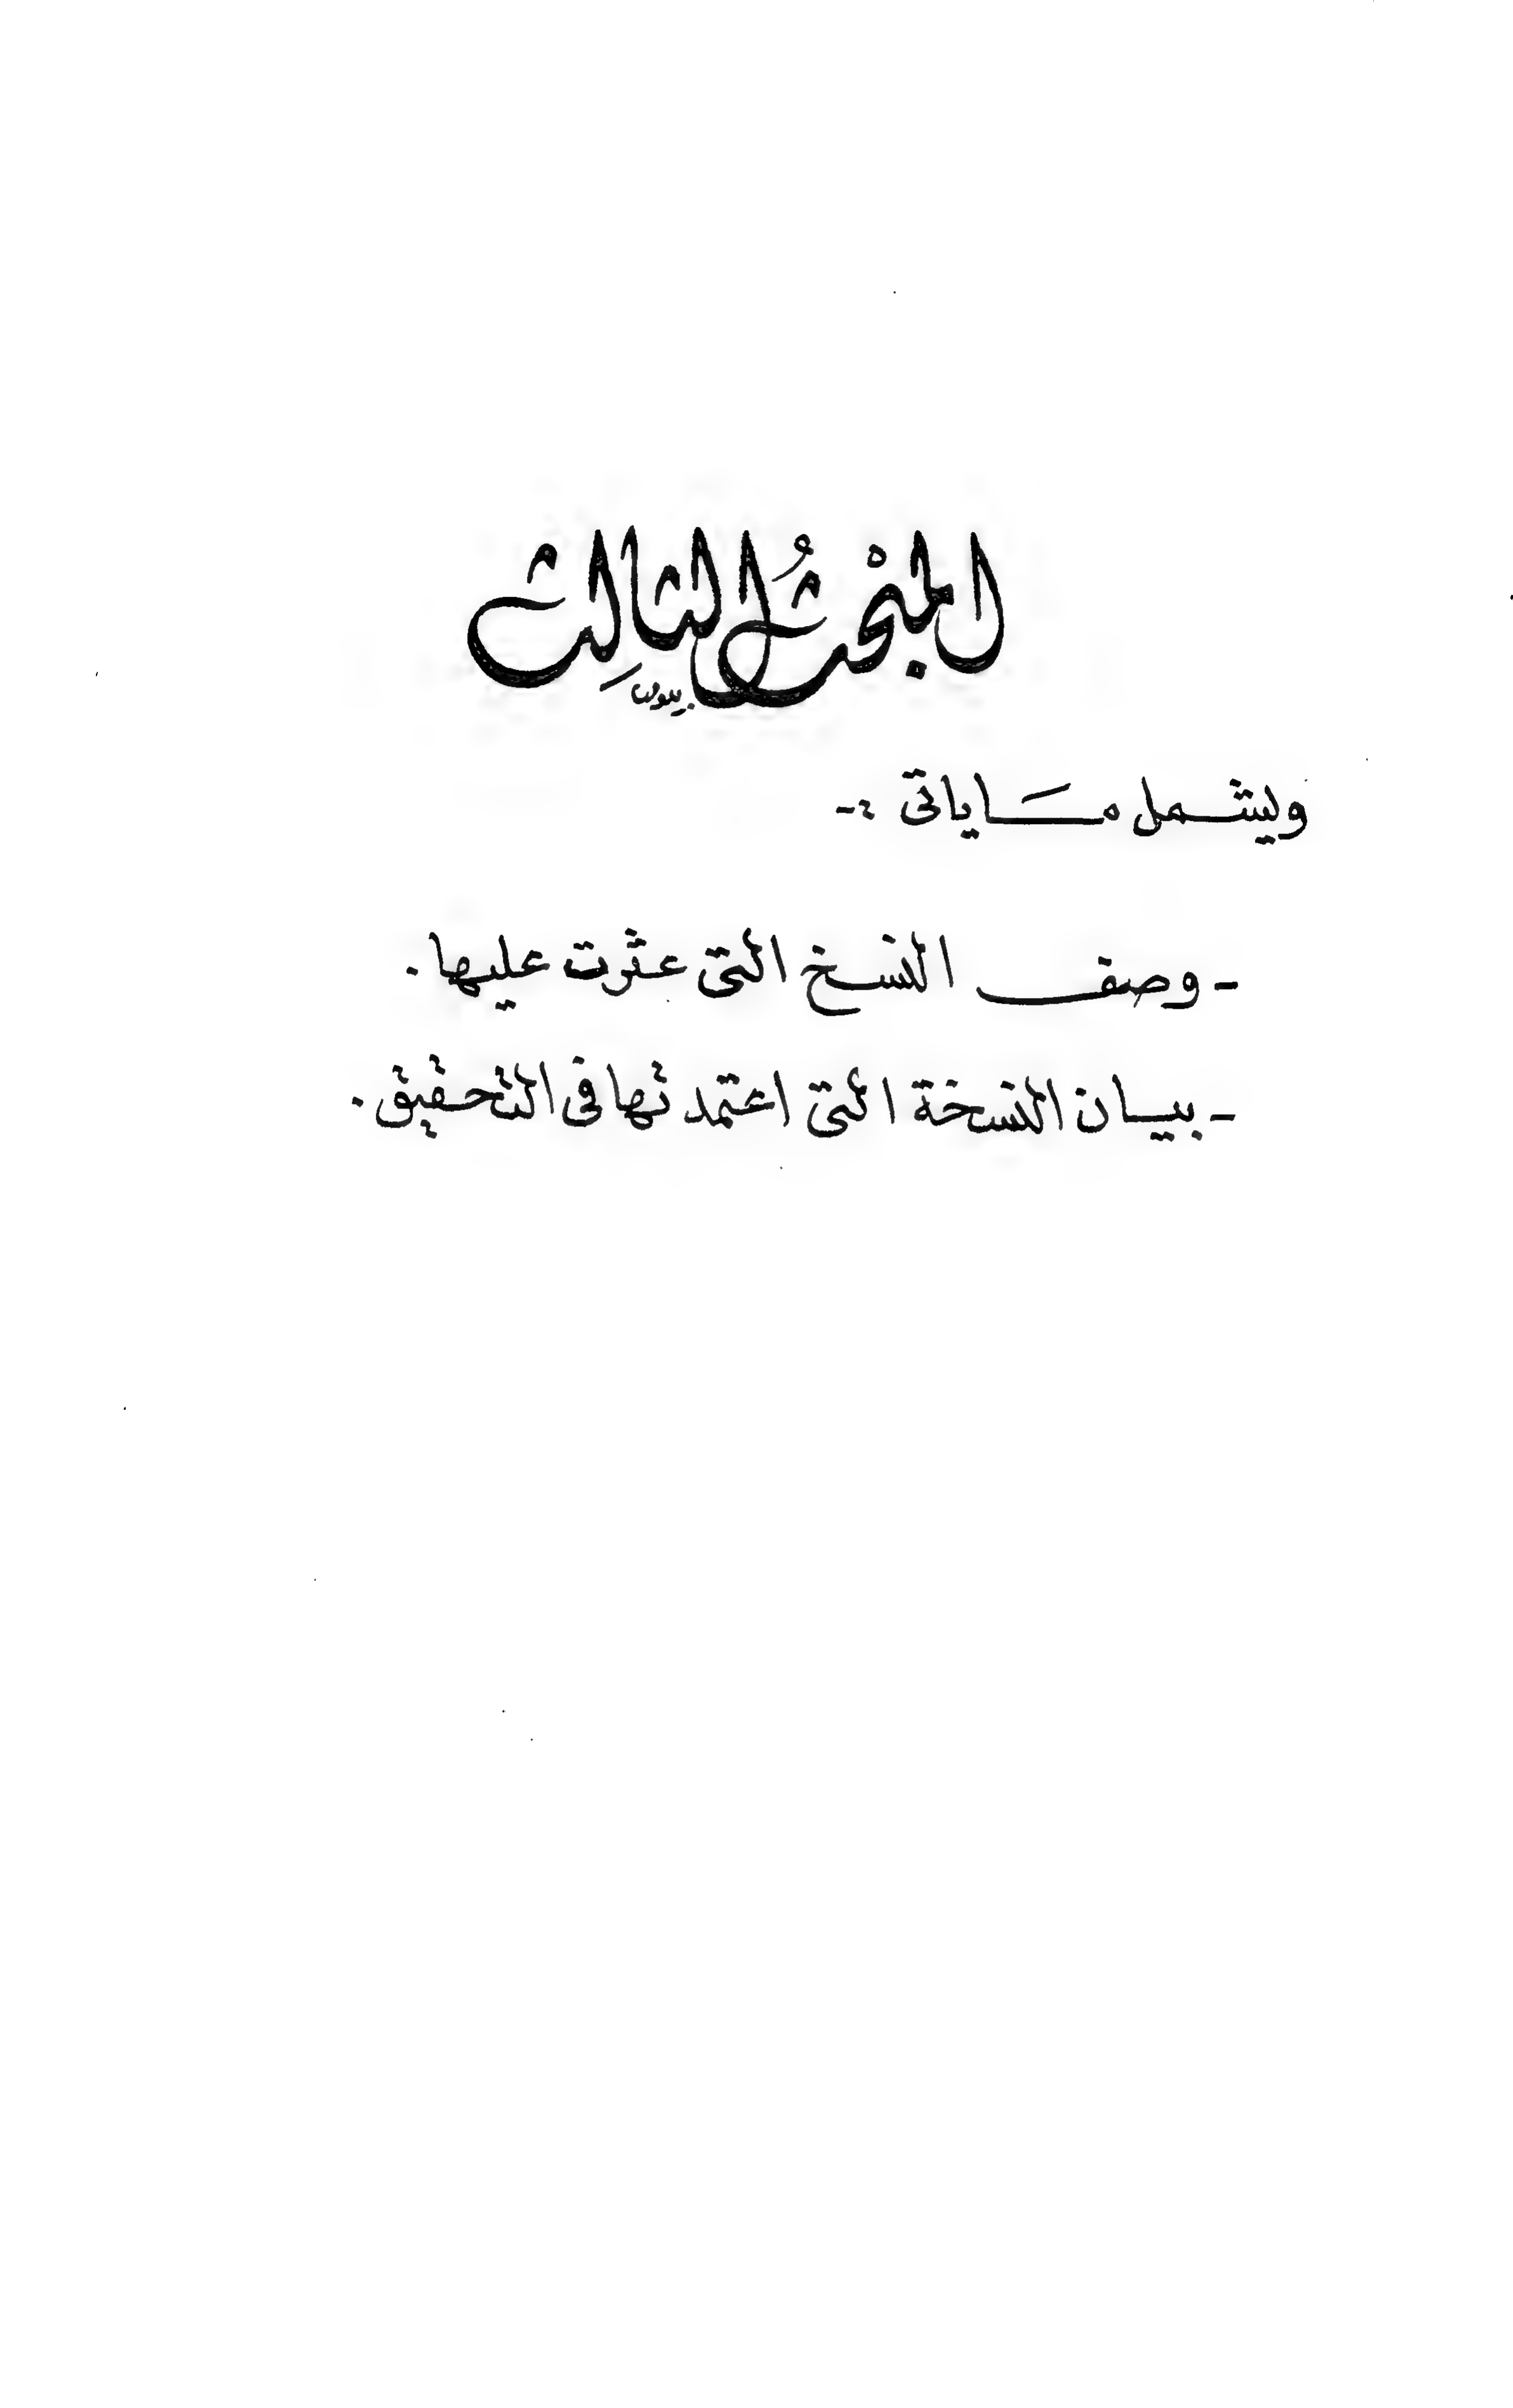 المبْحثُ الثالِث
ويشمل مَا ياتى :-
- وصف النسخ التى عثرت عليها .
- بيان النسخة التى اعتمدتها فى التحقيق .